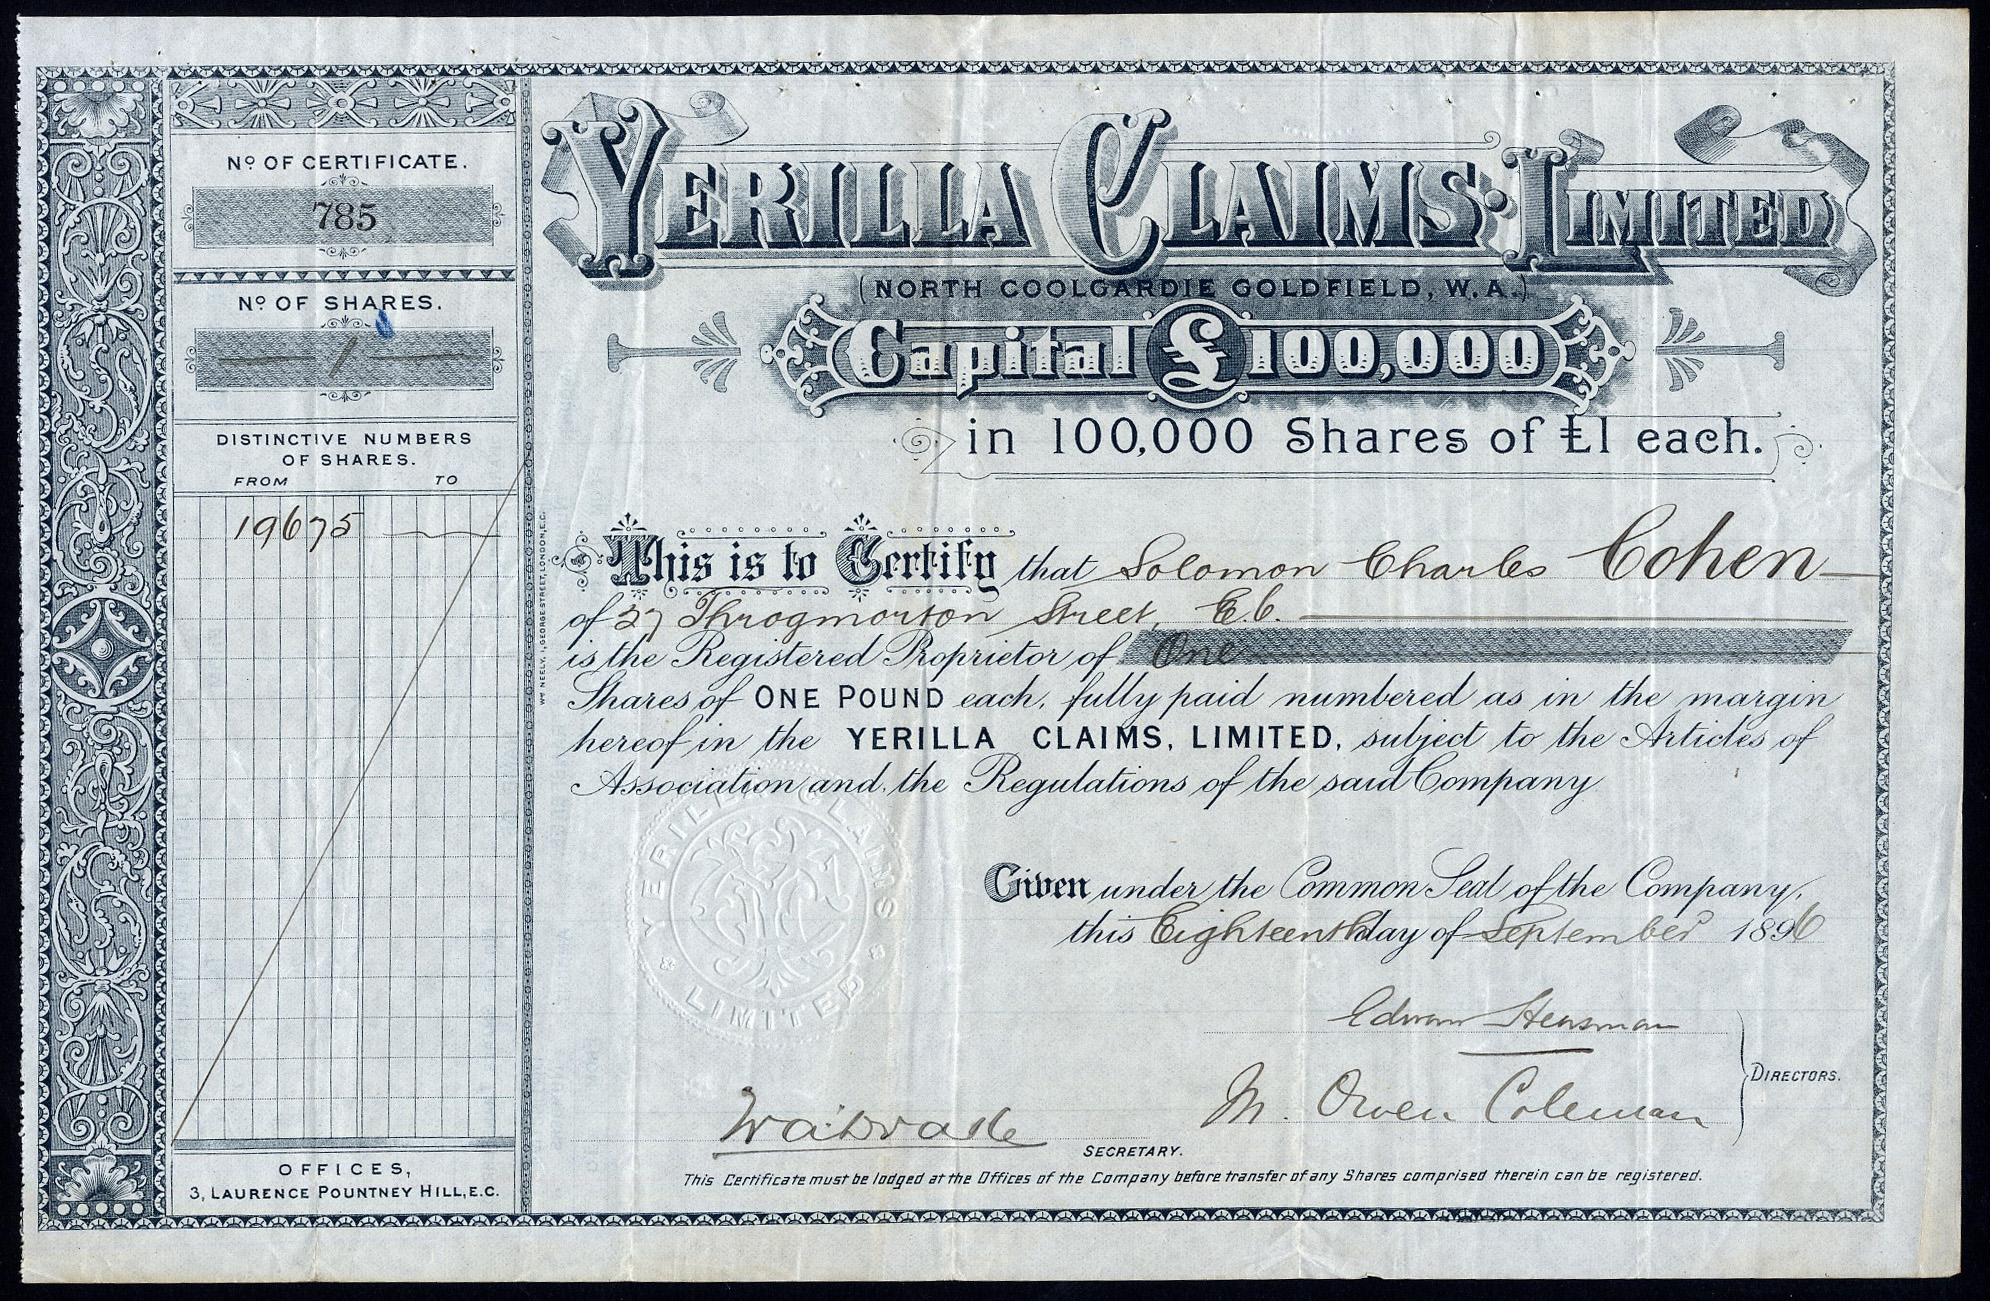 Nº OF CERTIFICATE.
785
Nº OF SHARES.
1
DISTINCTIVE NUMBERS
OF SHARES.
FROM TO
19675
OFFICES,
3, LAURENCE POUNTNEY HILL, E.C.
Wm NEELY, 1, GEORGE STREET, LONDON, E.C.
YERILLA CLAIMS: LIMITED
(NORTH COOLGARDIE GOLDFIELD, W.A.)
Capital £100,000
in 100,000 Shares of £1 each.
This is to Certify that Solomon Charles Cohen
of 27 Throgmorton Street, E.C.
is the Registered Proprietor of One
Shares of ONE POUND each, fully paid numbered as in the margin
hereof in the YERILLA CLAIMS, LIMITED, subject to the Articles of
Association and the Regulations of the said Company
YERILLA CLAIMS
LIMITED
Given under the Common Seal of the Company,
this Eighteenth day of September 1896
Hensman
M. Owen Coleman
DIRECTORS.
SECRETARY.
This Certificate must be lodged at the Offices of the Company before transfer of any Shares comprised therein can be registered.